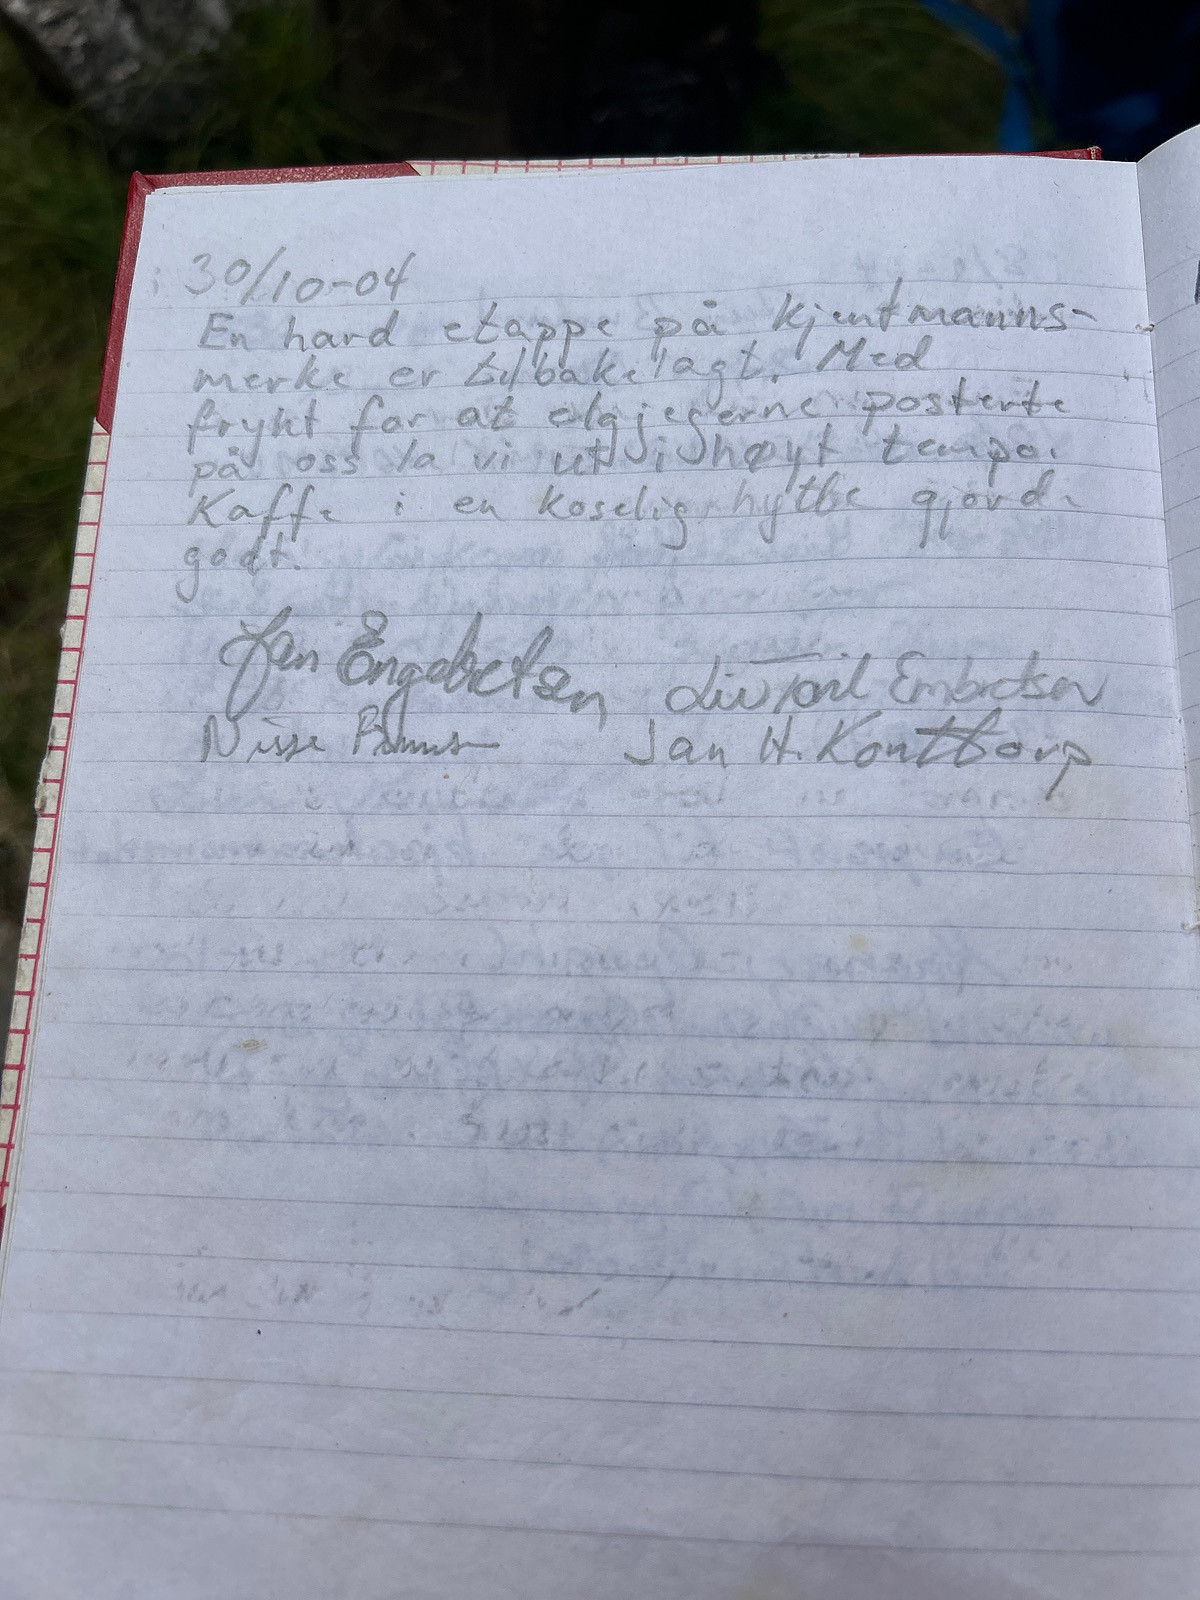 30/10-04
En hard etappe på kjentmanns-
merke er tilbakelagt. Med
frykt for at elgjegerne posterte
på oss la vi ut i høyt tempo.
Kaffe i en koselig hytte gjorde
godt.
Jan Engebretsen Liv Toril Embretsen
Nisse Jan H. Konttorp